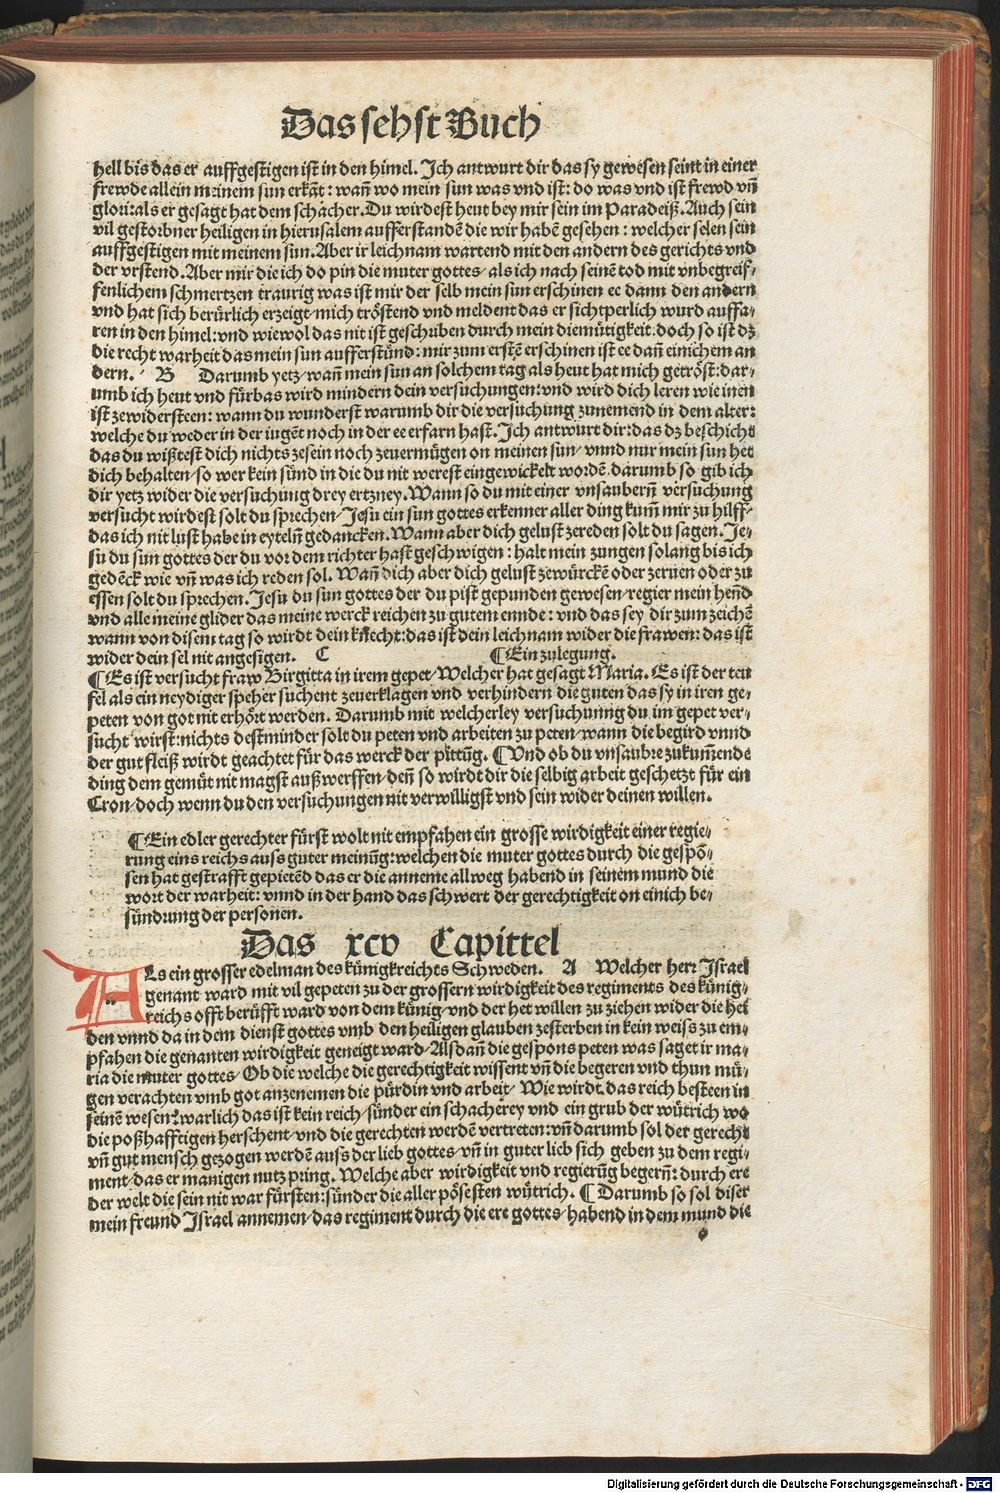 Das sehst Buch
hell bis das er auffgestigen ist in den himel. Ich antwurt dir das sy gewesen seint in einer
frewde allein meinem sun erkāt: wañ wo mein sun was vnd ist: do was vnd ist frewd vñ
glori: als er gesagt hat dem schacher. Du wirdest heut bey mir sein im Paradeiß. Auch sein
vil gestorbner heiligen in hierusalem aufferstandē die wir habē gesehen: welcher selen sein
auffgestigen mit meinem sun. Aber ir leichnam wartend mit den andern des gerichts vnd
der vrstend. Aber mir die ich do pin die muter gottes/ als ich nach seinē tod mit vnbegreif⸗
fenlichem schmertzen traurig was ist mir der selb mein sun erschinen ee dann den andern
vnd hat sich berürlich erzeigt/ mich tröstend vnd meldent das er sichtperlich wurd auffa⸗
ren in den himel: vnd wiewol das nit ist geschriben durch mein diemütigkeit. doch so ist dz
die recht warheit das mein sun aufferstünd: mir zum erstē erschinen ist ee dañ einichem an
dern. B Darumb yetz/ wañ mein sun an solchem tag als heut hat mich getröst: dar⸗
umb ich heut vnd fürbas wird mindern dein versuchungen: vnd wird dich leren wie inen
ist zewidersteen: wann du wunderst warumb dir die versuchung zunemend in dem alter:
welche du weder in der iugēt noch in der ee erfarn hast. Ich antwurt dir: das dz beschicht
das du wißtest dich nichts zesein noch zeuermügen on meinen sun/ vnnd nur mein sun het
dich behalten/ so wer kein sünd in die du nit werest eingewickelt wordē. darumb so gib ich
dir yetz wider die versuchung drey ertzney. Wann so du mit einer vnsauberñ versuchung
versucht wirdest solt du sprechen/ Jesu ein sun gottes erkenner aller ding kum̄ mir zu hilff⸗
das ich nit lust habe in eytelñ gedancken. Wann aber dich gelust zereden solt du sagen. Je⸗
su du sun gottes der du vor dem richter hast geschwigen: halt mein zungen solang bis ich
gedēck wie vñ was ich reden sol. Wañ dich aber dich gelust zewürckē oder zeruen oder zu
essen solt du sprechen. Jesu du sun gottes der du pist gepunden gewesen/ regier mein hend̄
vnd alle meine glider das meine werck reichen zu gutem ennde: vnd das sey dir zum zeichē
wann von disem tag so wirdt dein knecht: das ist dein leichnam wider die frawen: das ist
wider dein sel nit angesigen. C ¶ Ein zulegung.
¶ Es ist versucht fraw Birgitta in irem gepet/ Welcher hat gesagt Maria. Es ist der teu
fel als ein neydiger speher suchent zeuerklagen vnd verhindern die guten das sy in iren ge⸗
peten von got nit erhört werden. Darumb mit welcherley versuchunng du im gepet ver⸗
sucht wirst: nichts destminder solt du peten vnd arbeiten zu peten/ wann die begird vnnd
der gut fleiß wirdt geachtet für das werck der pittūg. ¶ Vnd ob du vnsaubre zukum̄ende
ding dem gemüt nit magst außwerffen/ deñ so wirdt dir die selbig arbeit geschetzt für ein
Cron/ doch wenn du den versuchungen nit verwilligst vnd sein wider deinen willen.
¶ Ein edler gerechter fürst wolt nit empfahen ein grosse wirdigkeit einer regie⸗
rung eins reichs auß guter meinūg: welchen die muter gottes durch die gespō⸗
sen hat gestrafft gepietēd das er die anneme allweg habend in seinem mund die
wort der warheit: vnnd in der hand das schwert der gerechtigkeit on einich be⸗
sündrung der personen.
Das xcv Capittel
Als ein grosser edelman des künigkreichts Schweden. A Welcher herr Israel
genant ward mit vil gepeten zu der grossern wirdigkeit des regiments des künig⸗
reichs offt berüfft ward von dem künig/ vnd der het willen zu ziehen wider die hei
den vnnd da in dem dienst gottes vmb den heiligen glauben zesterben in kein weiss zu em⸗
pfahen die genanten wirdigkeit geneigt ward/ Alsdañ die gespons peten was saget ir ma⸗
ria die muter gottes/ Ob die welche die gerechtigkeit wissent vñ die begeren vnd thun mü⸗
gen verachten vmb got anzenemen die pürdin vnd arbeit/ Wie wirdt das reich besteen in
seinē wesen? warlich das ist kein reich/ sünder ein schacherey vnd ein grub der wütrich wo
die poßhafftigen herschent/ vnd die gerechten werdē vertreten: vñ darumb sol der gerecht
vñ gut mensch gezogen werdē auss der lieb gottes/ vñ in guter lieb sich geben zu dem regi⸗
ment/ das er manigen nutz pring. Welche aber wirdigkeit vnd regierūg begerñ: durch ere
der welt die sein nit war fürsten: sünder die aller pösesten wütrich. ¶ Darumb so sol diser
mein freund Israel annemen/ das regiment durch die ere gottes/ habend in dem mund die
Digitalisierung gefördert durch die Deutsche Forschungsgemeinschaft - DFG